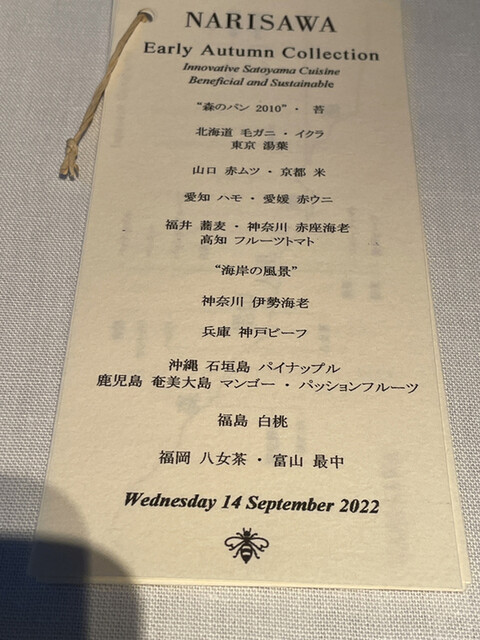 NARISAWA
Early Autumn Collection
Innovative Satoyama Cuisine
Beneficial and Sustainable
“森のパン 2010”・ 苔
北海道 毛ガニ ・ イクラ
東京 湯葉
山口 赤ムツ ・ 京都 米
愛知 ハモ ・ 愛媛 赤ウニ
福井 蕎麦 ・ 神奈川 赤座海老
高知 フルーツトマト
“海岸の風景”
神奈川 伊勢海老
兵庫 神戸ビーフ
沖縄 石垣島 パイナップル
鹿児島 奄美大島 マンゴー ・ パッションフルーツ
福島 白桃
福岡 八女茶 ・ 富山 最中
Wednesday 14 September 2022